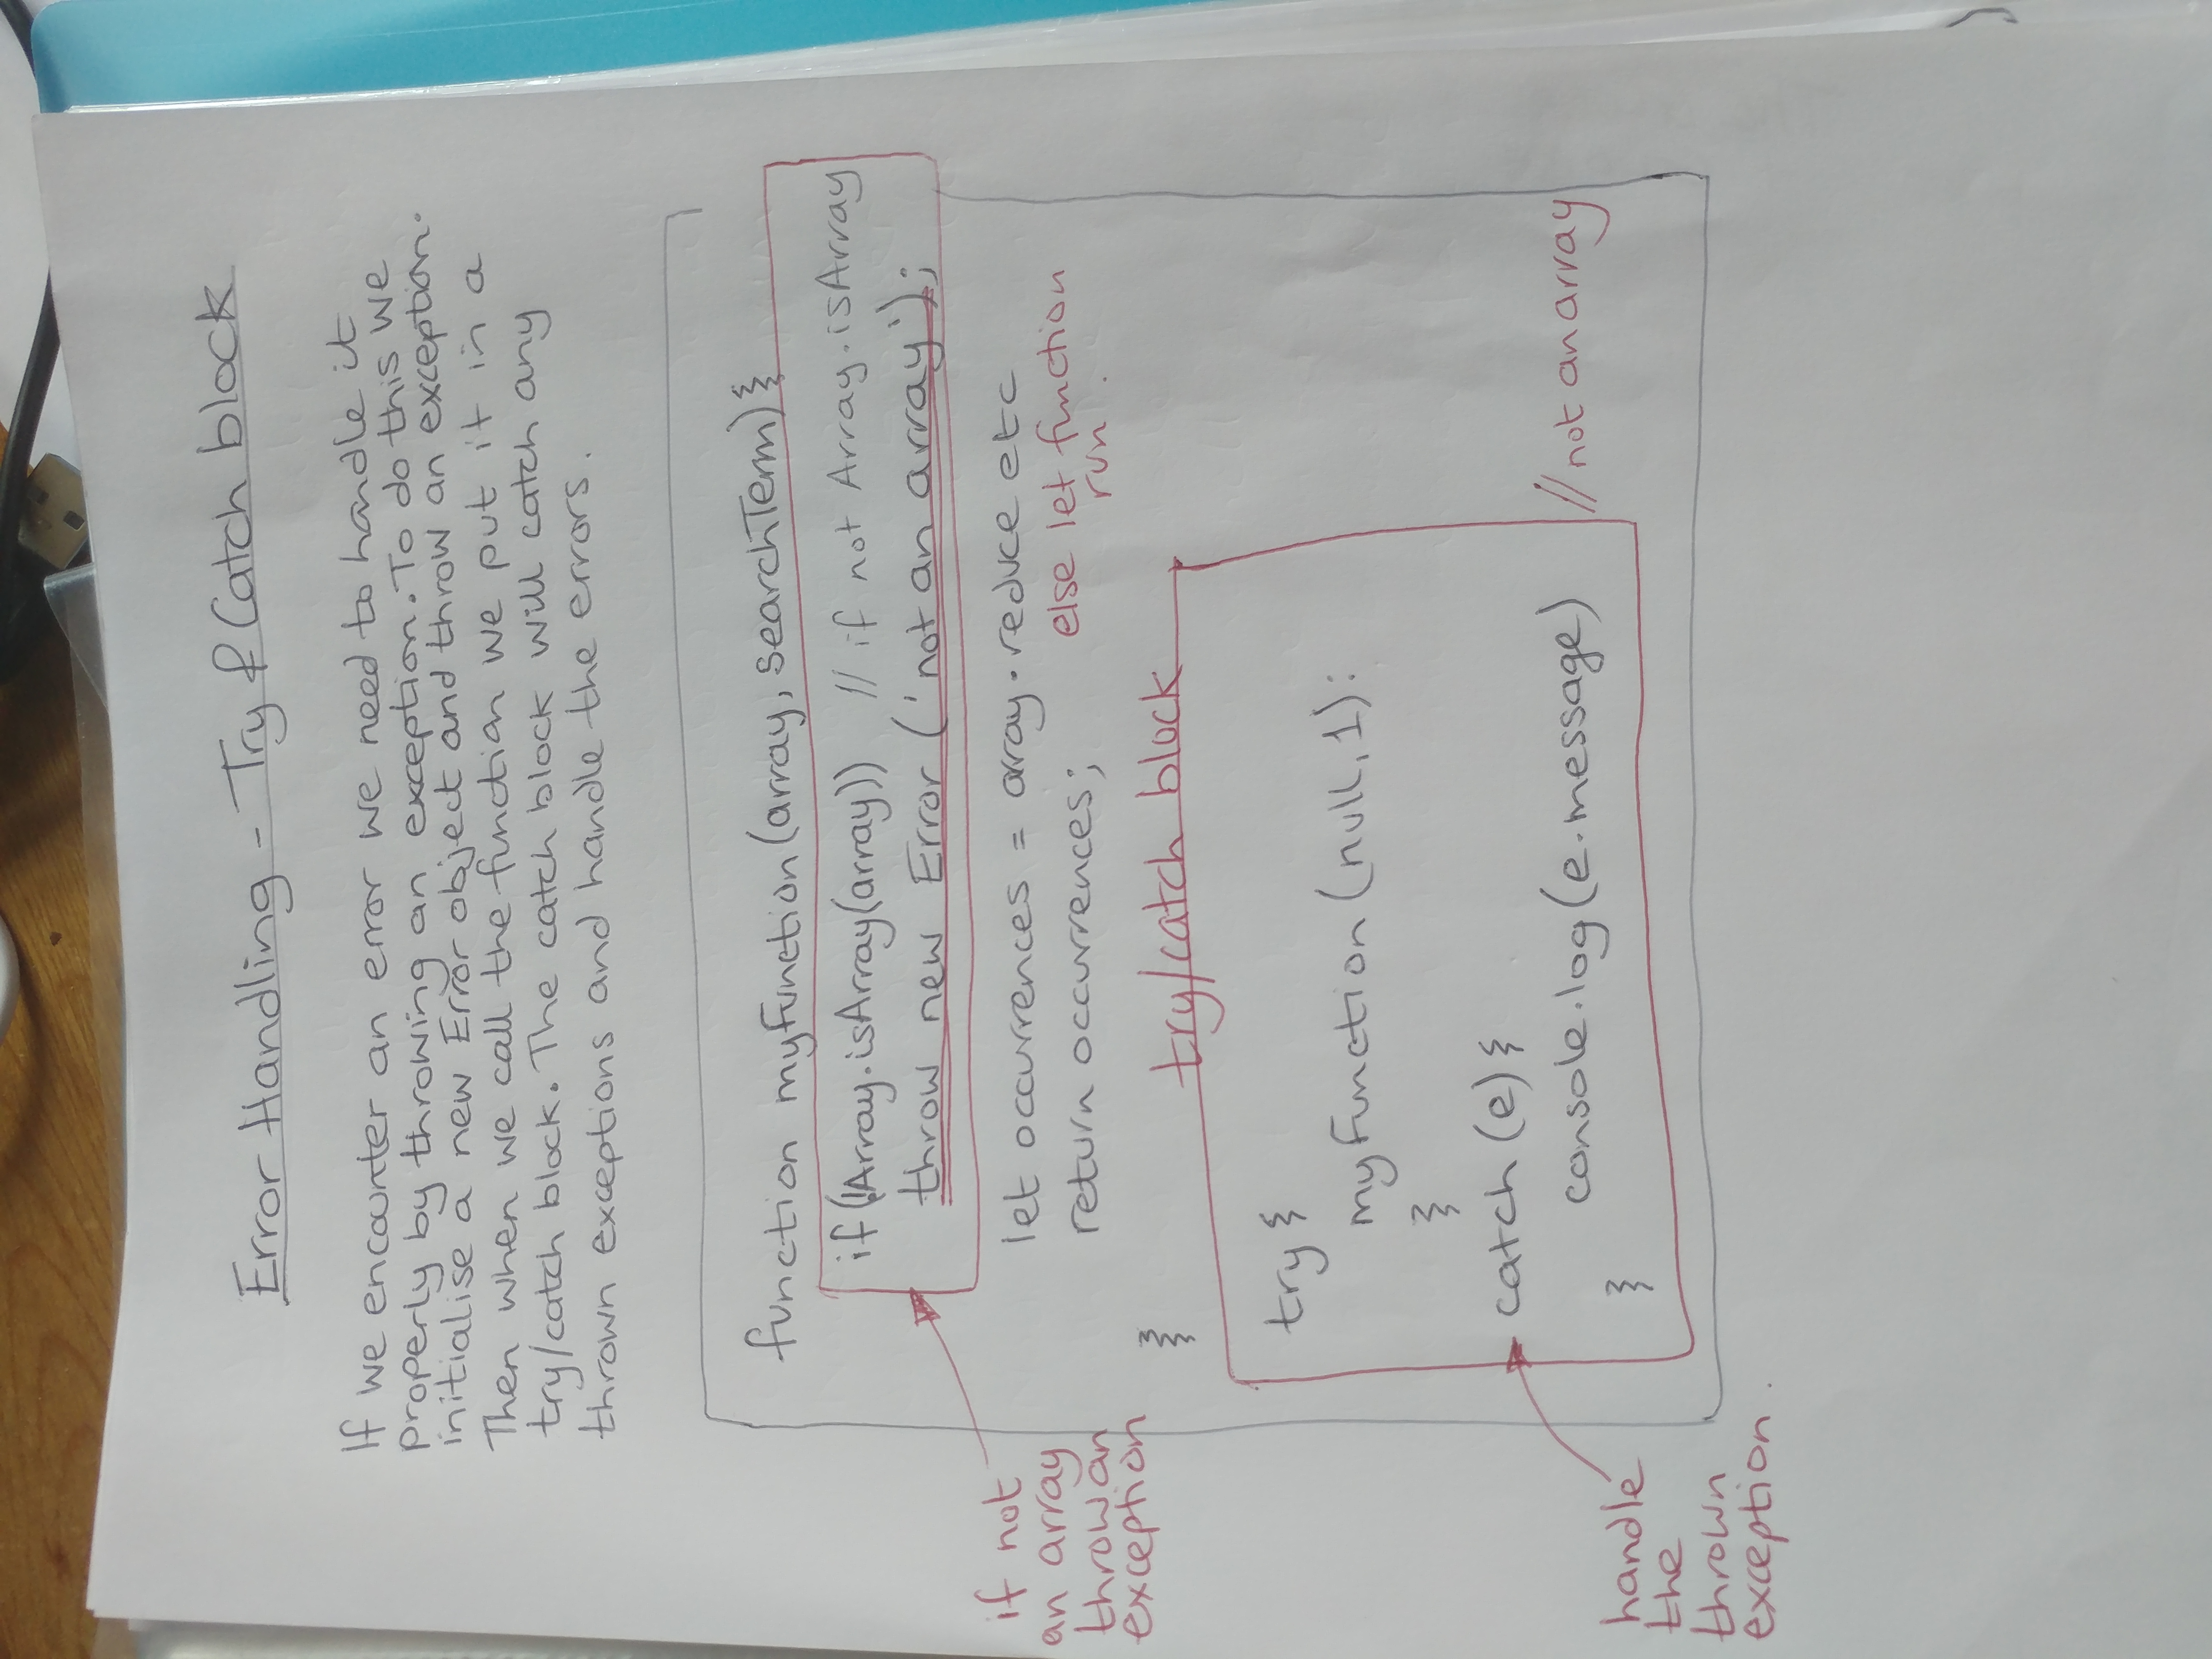 Error Handling - Try & Catch block
If we encounter an error we need to handle it
properly by throwing an exception. To do this we
initialise a new Error object and throw an exception.
Then when we call the function we put it in a
try/catch block. The catch block will catch any
thrown exceptions and handle the errors.
function myFunction(array, searchTerm){
if(!Array.isArray(array)) // if not Array.isArray
throw new Error ('not an array');
if not
an array
throw an
exception
let occurrences = array.reduce etc
return occurrences;
else let function
run.
}
try/catch block
try{
myFunction(null, 1):
}
catch(e){
console.log(e.message) // not an array
}
handle
the
thrown
exception.